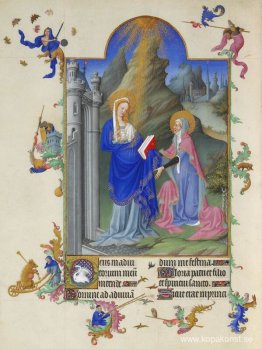 Deus in adiu
torium meum
intende.
Domine ad adiuuan
dum me festina.
Gloria patri et filio
et spiritui sancto.
Sicut erat in prin
www.kopakonst.se